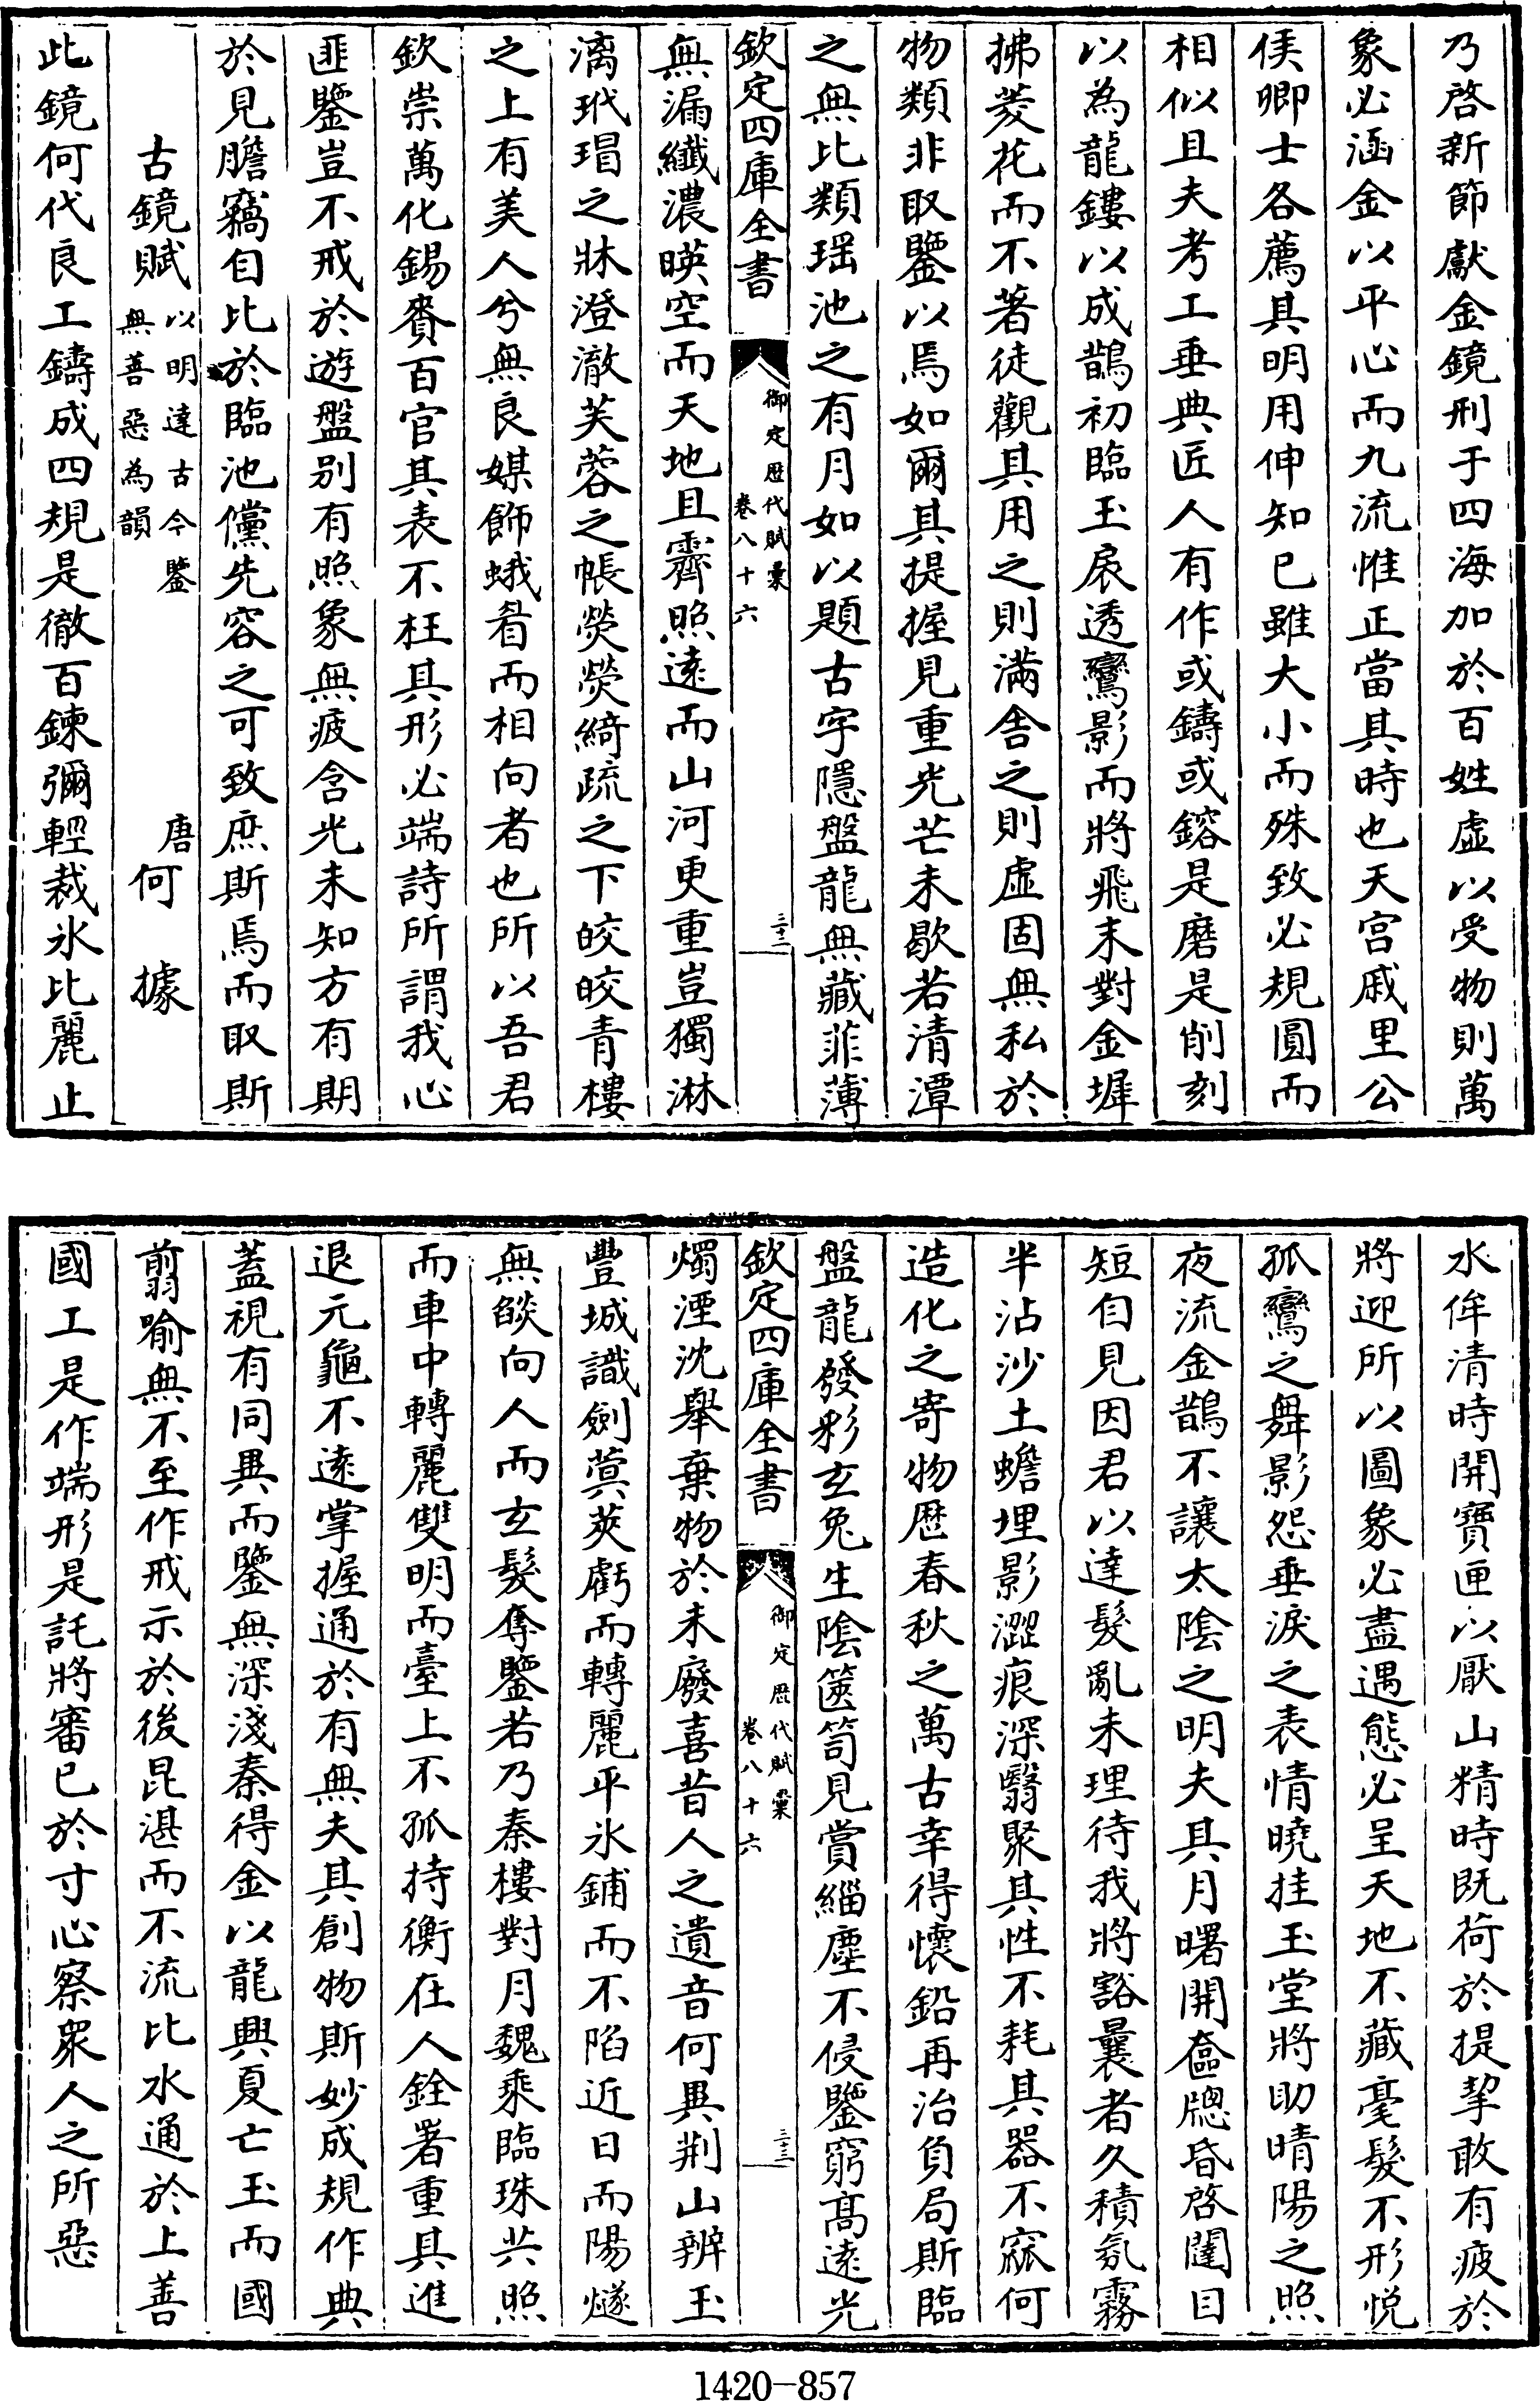 乃啓新節獻金鏡刑于四海加於百姓虛以受物則萬
象必涵金以平心而九流惟正當其時也天宫戚里公
侯卿士各薦具明用伸知已雖大小而殊致必規圓而
相似且夫考工垂典匠人有作或鑄或鎔是磨是削刻
以為龍鏤以成鵲初臨玉扆透鸞影而將飛未對金墀
拂菱花而不著徒觀其用之則滿舎之則虛固無私於
物類非取鑒以焉如爾其提握見重光芒未歇若清潭
之無比類瑶池之有月如以題古字隱盤龍無藏菲薄
欽定四庫全書
御定歴代賦彙
卷八十六
三十二
無漏纖濃暎空而天地且霽照逺而山河更重豈獨淋
漓玳瑁之牀澄澈芙蓉之帳熒熒綺疏之下皎皎青樓
之上有美人兮無良媒飾蛾眉而相向者也所以吾君
欽崇萬化錫賚百官其表不枉其形必端詩所謂我心
匪鑒豈不戒於遊盤别有照象無疲含光未知方有期
於見膽竊自比於臨池儻先容之可致庶斯焉而取斯
古鏡賦
以明達古今鑒
無善惡為韻
唐
何據
此鏡何代良工鑄成四規是徹百鍊彌輕裁氷比麗止
水侔清時開寶匣以厭山精時既荷於提挈敢有疲於
將迎所以圖象必盡遇態必呈天地不藏毫髮不形悦
孤鸞之舞影怨垂淚之表情曉挂玉堂將助晴陽之照
夜流金鵲不讓太隂之明夫其月曙開奩牎昏啓闥目
短自見因君以達髮亂未理待我將豁曩者久積氛霧
半沾沙土蟾埋影澀痕深翳聚其性不耗其器不窳何
造化之寄物歴春秋之萬古幸得懷鉛再治負局斯臨
盤龍發彩玄兔生隂篋笥見賞緇塵不侵鑒窮髙逺光
欽定四庫全書
御定歴代賦彙
卷八十六
三十三
燭湮沈舉棄物於未廢喜昔人之遺音何異荆山辨玉
豐城識劍蓂莢虧而轉麗平氷鋪而不陷近日而陽燧
無餤向人而玄髮奪鑒若乃秦樓對月魏乘臨珠共照
而車中轉麗雙明而臺上不孤持衡在人銓署重具進
退元龜不逺掌握通於有無夫其創物斯妙成規作典
蓋視有同異而鑒無深淺秦得金以龍興夏亡玉而國
翦喻無不至作戒示於後昆湛而不流比水通於上善
國工是作端形是託將審已於寸心察衆人之所惡
1420-857